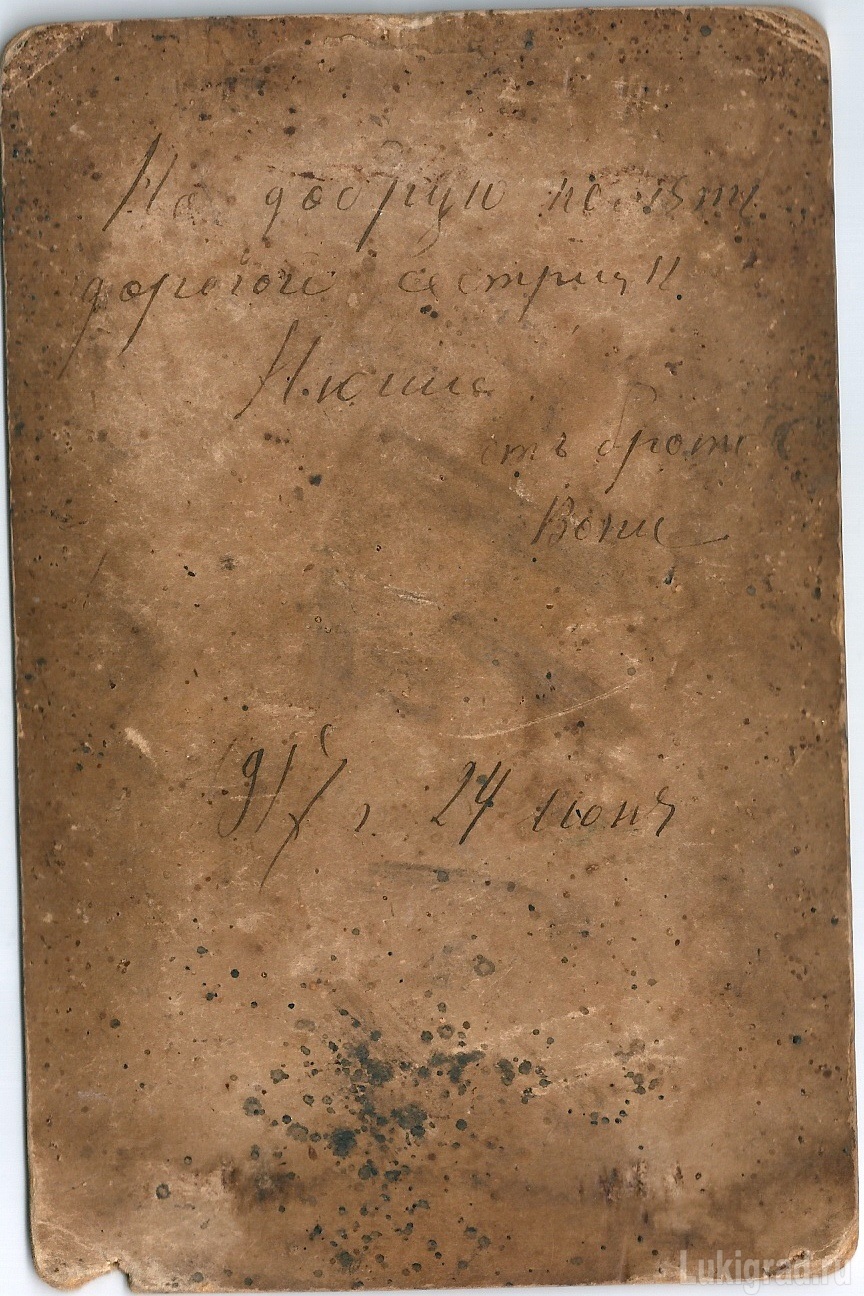 На добрую память
дорогой сестрицы
Нюши
отъ брата
Вени
1917 г 24 июня
Lukigrad.ru